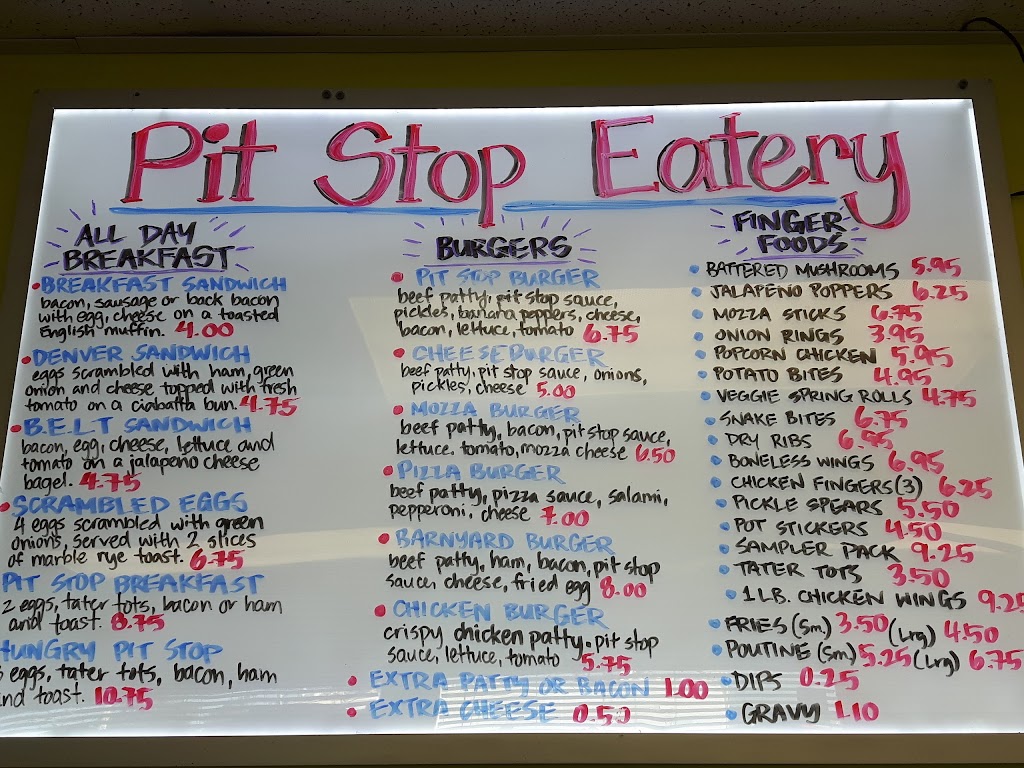 Pit Stop Eatery
ALL DAY
BREAKFAST
BREAKFAST SANDWICH
bacon, sausage or back bacon
with egg, cheese on a toasted
English muffin. 4.00
DENVER SANDWICH
eggs scrambled with ham, green
onion and cheese topped with fresh
tomato on a ciabatta bun. 4.75
B.E.L.T SANDWICH
bacon, egg, cheese, lettuce and
tomato on a jalapeno cheese
bagel. 4.75
SCRAMBLED EGGS
4 eggs scrambled with green
onions, served with 2 slices
of marble rye toast. 6.75
PIT STOP BREAKFAST
2 eggs, tater tots, bacon or ham
and toast. 8.75
HUNGRY PIT STOP
eggs, tater tots, bacon, ham
and toast. 10.75
BURGERS
PIT STOP BURGER
beef patty, pit stop sauce,
pickles, banana peppers, cheese,
bacon, lettuce, tomato 6.75
CHEESEBURGER
beef patty, pit stop sauce, onions,
pickles, cheese 5.00
MOZZA BURGER
beef patty, bacon, pit stop sauce,
lettuce, tomato, mozza cheese 6.50
PIZZA BURGER
beef patty, pizza sauce, salami,
pepperoni, cheese 7.00
BARNYARD BURGER
beef patty, ham, bacon, pit stop
sauce, cheese, fried egg 8.00
CHICKEN BURGER
crispy chicken patty, pit stop
sauce, lettuce, tomato 5.75
EXTRA PATTY OR BACON 1.00
EXTRA CHEESE 0.50
FINGER
FOODS
BATTERED MUSHROOMS 5.95
JALAPENO POPPERS 6.25
MOZZA STICKS 6.75
ONION RINGS 3.95
POPCORN CHICKEN 5.95
POTATO BITES 4.95
VEGGIE SPRING ROLLS 4.75
SNAKE BITES 6.75
DRY RIBS 6.95
BONELESS WINGS 6.95
CHICKEN FINGERS (3) 6.25
PICKLE SPEARS 5.50
POT STICKERS 4.50
SAMPLER PACK 9.25
TATER TOTS 3.50
1 LB. CHICKEN WINGS 9.25
FRIES (Sm.) 3.50 (Lrg) 4.50
POUTINE (Sm) 5.25 (Lrg) 6.75
DIPS 0.25
GRAVY 1.10